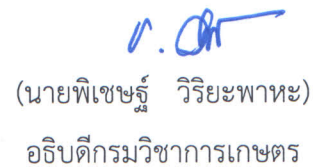 (นายพิเชษฐ์ วิริยะพาหะ)
อธิบดีกรมวิชาการเกษตร